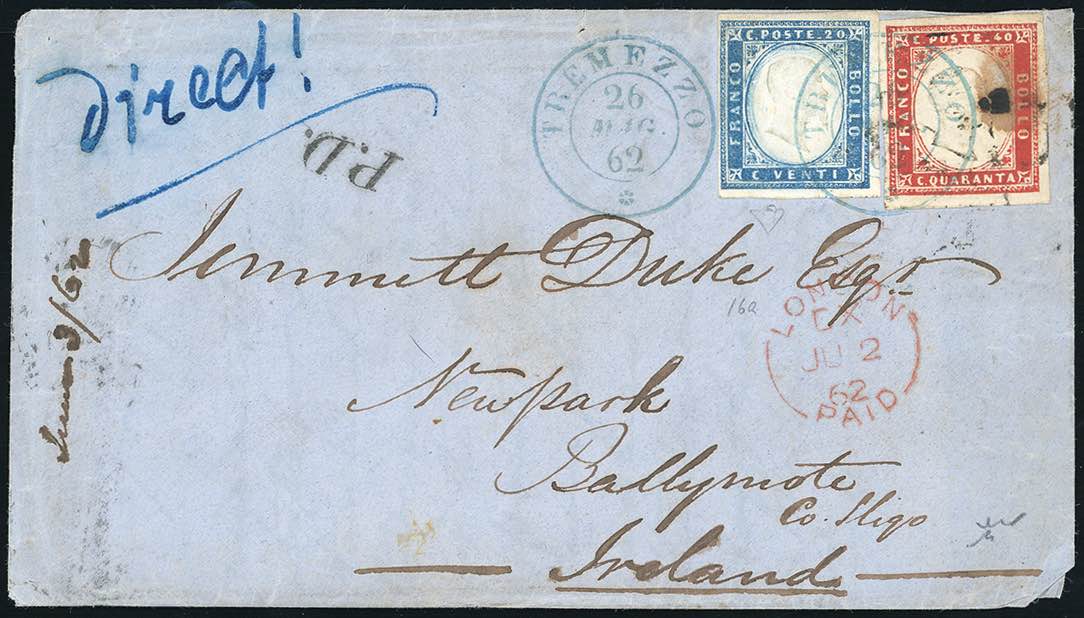 direct!
P.D.
TREMEZZO
26
62
C. POSTE. 20
FRANCO
BOLLO
C. VENTI
C. POSTE. 40
FRANCO
BOLLO
C. QUARANTA
Jemmett Duke Esqr
16a
LONDON
CX
JU 2
62
PAID
Newpark
Ballymote
Co. Sligo
Ireland